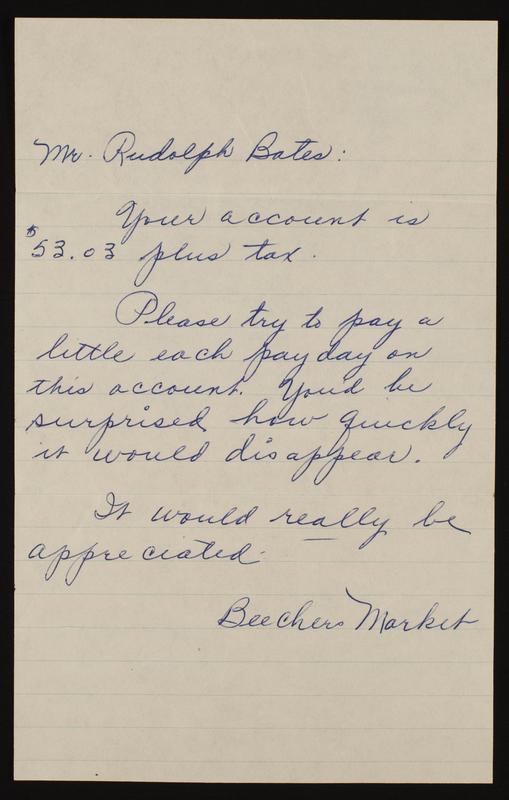 Mr. Rudolph Bates:
Your account is
$53.03 plus tax.
Please try to pay a
little each payday on
this account. You'd be
surprised how quickly
it would disappear.
It would really be
appreciated.
Beechers Market